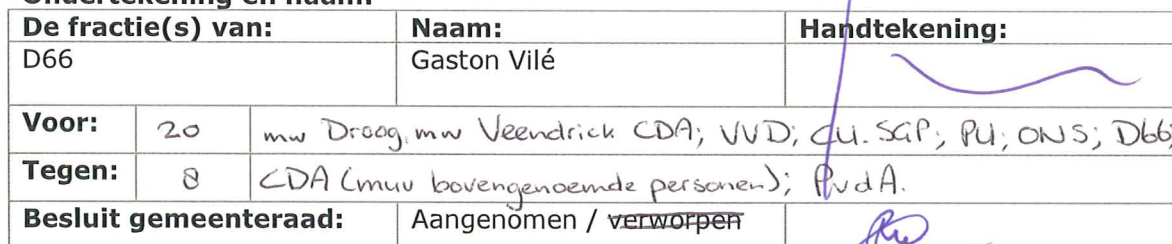 De fractie(s) van: Naam: Handtekening:
D66 Gaston Vilé
Voor: 20 mw Droog, mw Veendrick CDA; VVD; CU.SGP; PU; ONS; D66;
Tegen: 8 CDA (muv bovengenoemde personen); PvdA.
Besluit gemeenteraad: Aangenomen / verworpen